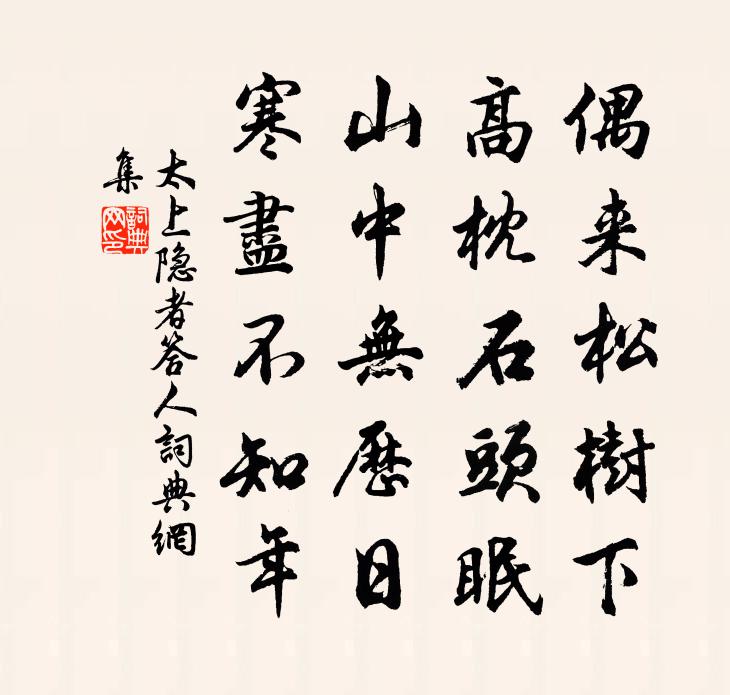 偶来松樹下
高枕石頭眠
山中無歷日
寒盡不知年
太上隐者答人詞典網
集
詞典
网印